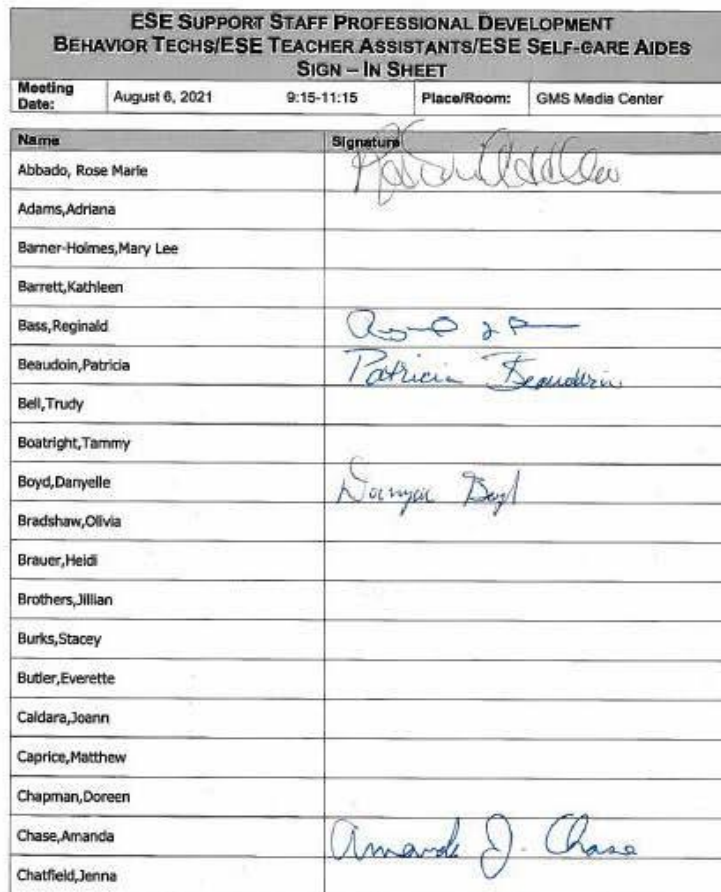 ESE SUPPORT STAFF PROFESSIONAL DEVELOPMENT
BEHAVIOR TECHS/ESE TEACHER ASSISTANTS/ESE SELF-CARE AIDES
SIGN – IN SHEET
Meeting Date: August 6, 2021 9:15-11:15 Place/Room: GMS Media Center
Name Signature
Abbado, Rose Marie
Adams,Adriana
Barner-Holmes,Mary Lee
Barrett,Kathleen
Bass,Reginald
Beaudoin,Patricia Patricia Beaudoin
Bell,Trudy
Boatright,Tammy
Boyd,Danyelle Boyd
Bradshaw,Olivia
Brauer,Heidi
Brothers,Jillian
Burks,Stacey
Butler,Everette
Caldara,Joann
Caprice,Matthew
Chapman,Doreen
Chase,Amanda Amanda J. Chase
Chatfield,Jenna